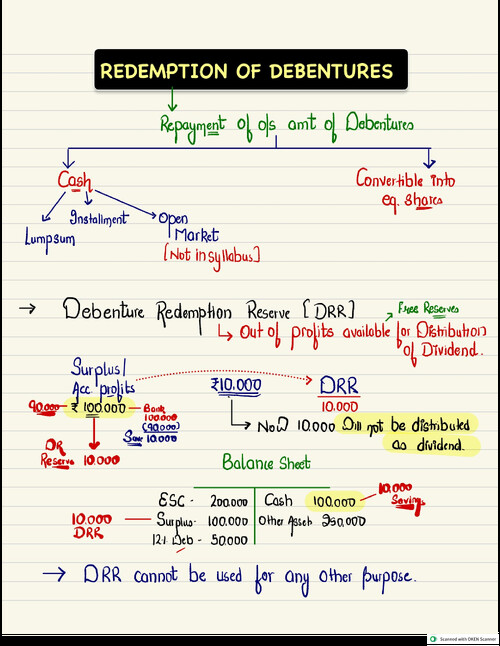 REDEMPTION OF DEBENTURES
Repayment of o/s amt of Debentures
Cash
Convertible into
eq. shares
Lumpsum
Installment
Open
Market
[Not in syllabus]
→ Debenture Redemption Reserve [DRR]
Free Reserves
↳ Out of profits available for Distribution
of Dividend.
Surplus/
Acc. profits
₹10,000
DRR
10,000
90,000 ₹ 100,000
Bank
100,000
(90,000)
Save 10,000
→ Now 10,000 Will not be distributed
as dividend.
DR
Reserve 10,000
Balance Sheet
10,000
Savings
ESC - 200,000 Cash 100,000
10,000
DRR
Surplus - 100,000 Other Asset 250,000
12% Deb - 50,000
→ DRR cannot be used for any other purpose.
Scanned with OKEN Scanner